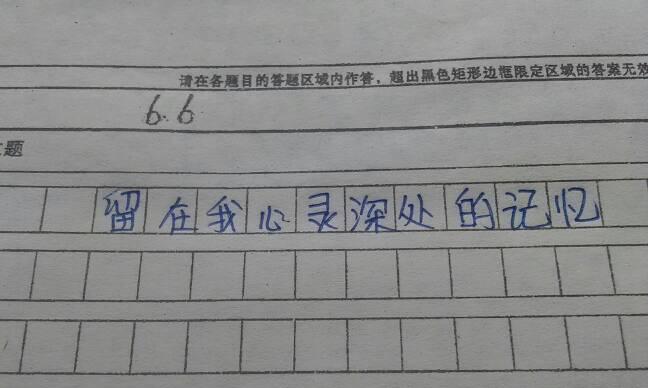 请在各题目的答题区域内作答，超出黑色矩形边框限定区域的答案无效
6.6
题
留在我心灵深处的记忆